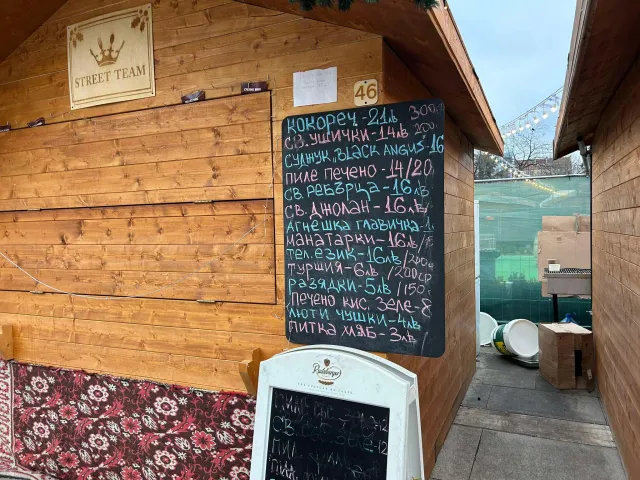 STREET TEAM
46
КОКОРЕЧ - 21лв 300
СВ. УШИЧКИ - 14лв 200
СУДЖУК "BLACK ANGUS" - 16
ПИЛЕ ПЕЧЕНО - 14/20
СВ. РЕБЪРЦА - 16лВ
СВ. ДЖОЛАН - 16лв
АГНЕШКА ГЛАВИЧКА -
МАНАТАРКИ - 16лв
ТЕЛ. ЕЗИК - 16лв/200г
ТУРШИЯ - 6лв/200гр
РАЗЯДКИ - 5лв/150
ПЕЧЕНО КИС. ЗЕЛЕ - 8
ЛЮТИ ЧУШКИ - 4лв
ПИТКА ХЛЯБ - 3лв